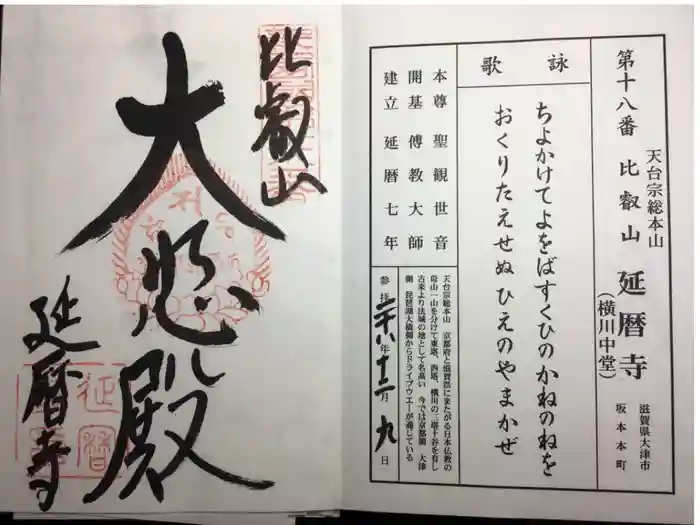 第十八番 比叡山 延暦寺
天台宗総本山
(横川中堂)
滋賀県大津市
坂本本町
詠歌
ちよかけてよをばすくひのかねのねを
おくりたえせぬひえのやまかぜ
本尊 聖観世音
開基 傳教大師
建立 延暦七年
天台宗総本山 京都府と滋賀県にまたがる日本仏教の
母山一山を分けて東塔、西塔、横川の三塔十谷を有し
古来より法城の地として名高い 今では京都側 大津
側 琵琶湖大橋側からドライブウエーが通じている
参拝 二十八年十二月九日
比叡山
大悲殿
延暦寺